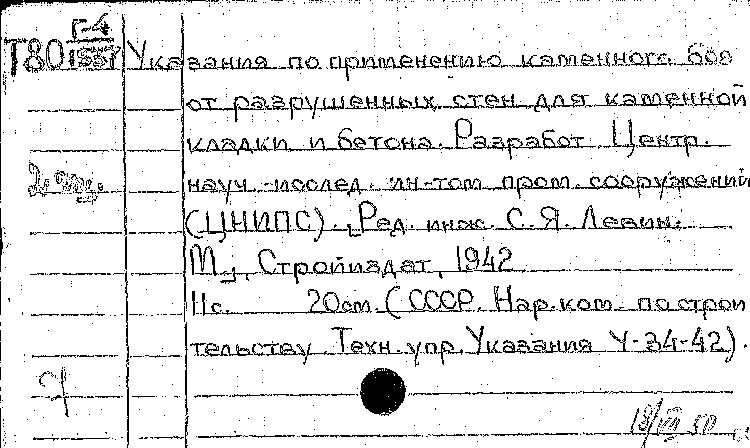 Г-4
Т80 1537 Указания по применению каменного боя
от разрушенных стен для каменной
кладки и бетона. Разработ. Центр.
науч.-послед. ин-том пром. сооружений
(ЦНИПС). Ред. инж. С. Я. Левин.
М., Стройиздат, 1942
11с. 20см. (СССР. Нар. ком. по строи
тельству. Техн. упр. Указания У-34-42).
18/VII 50